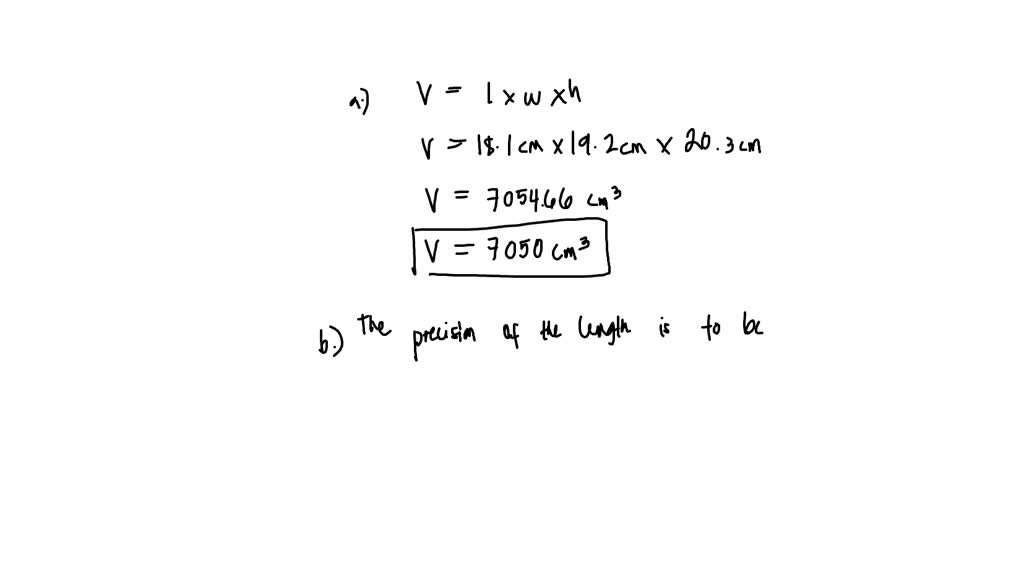 a.) V = l x w x h
V = 18.1 cm x 19.2 cm x 20.3 cm
V = 7054.66 cm³
V = 7050 cm³
b.) The precision of the length is to be